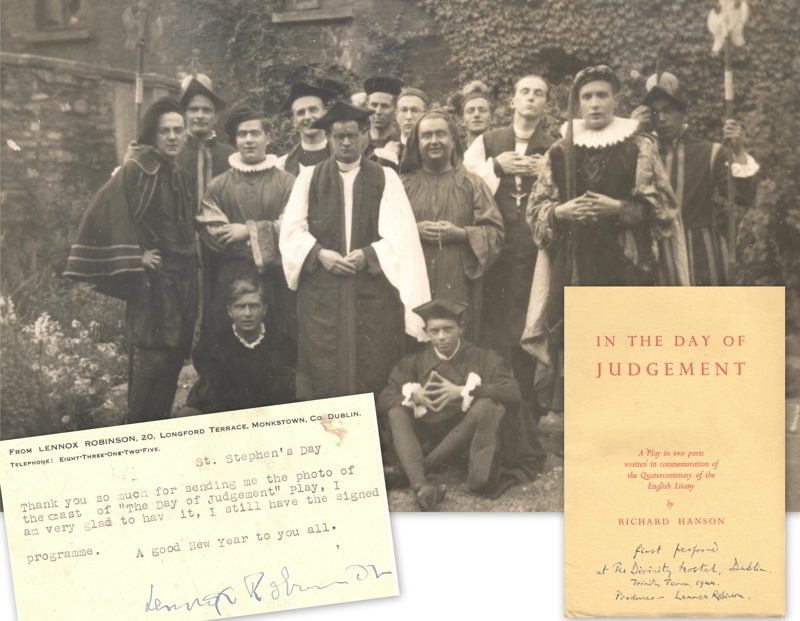 FROM LENNOX ROBINSON, 20, LONGFORD TERRACE, MONKSTOWN, CO. DUBLIN.
TELEPHONE: EIGHT-THREE-ONE-TWO-FIVE.
St. Stephen's Day
Thank you so much for sending me the photo of
the cast of "The Day of Judgement" Play, I
am very glad to have it, I still have the signed
programme. A good New Year to you all.
Lennox Robinson
IN THE DAY OF
JUDGEMENT
A Play in two parts
written in commemoration of
the Quatercentenary of the
English Litany
by
RICHARD HANSON
first performed
at The Divinity Hostel, Dublin.
Trinity Term 1944.
Producer - Lennox Robinson.